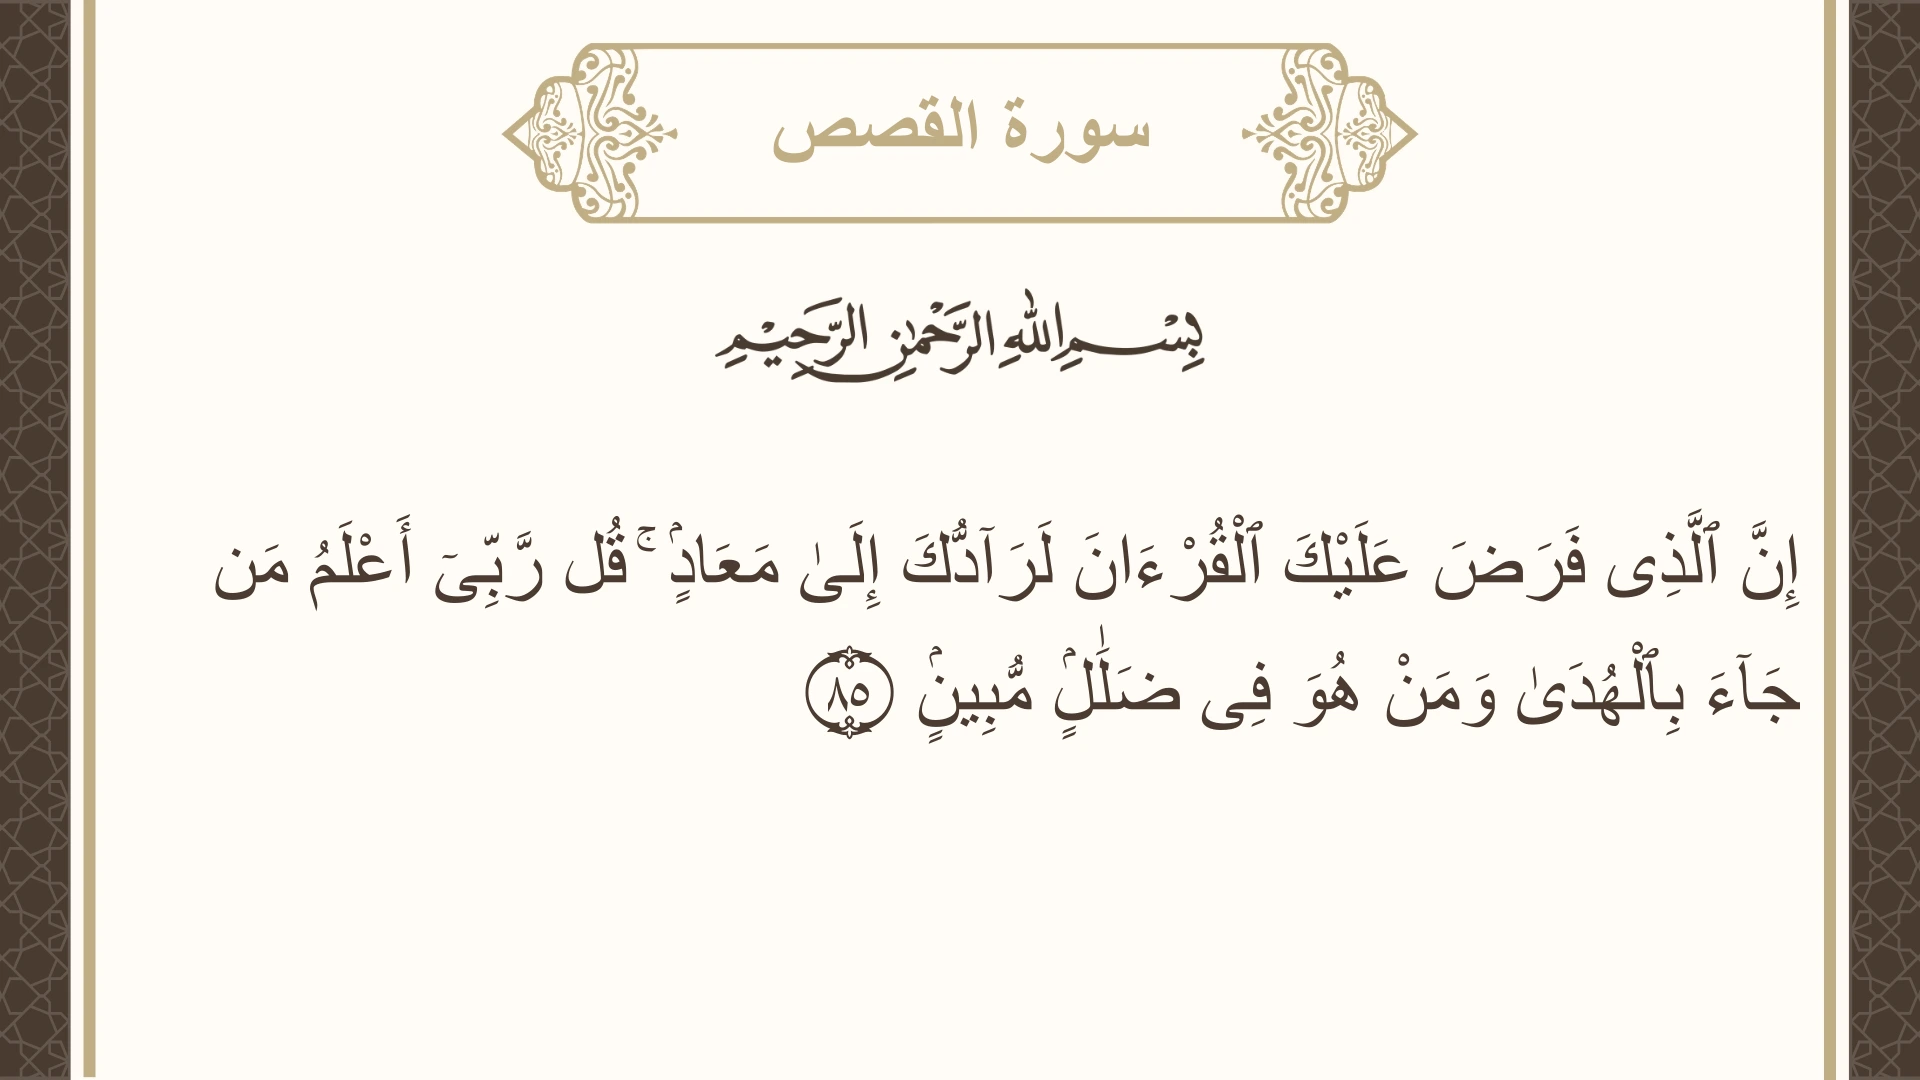 سورة القصص
بِسْمِ اللهِ الرَّحْمٰنِ الرَّحِيْمِ
إِنَّ ٱلَّذِى فَرَضَ عَلَيْكَ ٱلْقُرْءَانَ لَرَآدُّكَ إِلَىٰ مَعَادٍۢ ۚ قُل رَّبِّىٓ أَعْلَمُ مَن
جَآءَ بِٱلْهُدَىٰ وَمَنْ هُوَ فِى ضَلَـٰلٍۢ مُّبِينٍۢ ٨٥